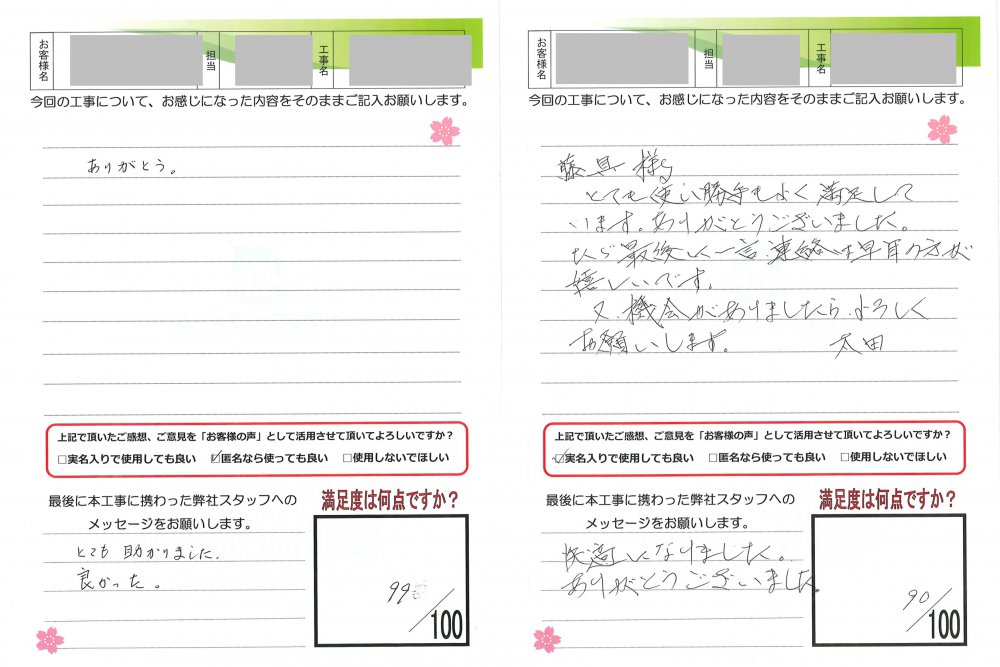 お客様名
担当
工事名
今回の工事について、お感じになった内容をそのままご記入お願いします。
ありがとう。
上記で頂いたご感想、ご意見を「お客様の声」として活用させて頂いてよろしいですか？
□実名入りで使用しても良い ☑匿名なら使っても良い □使用しないでほしい
最後に本工事に携わった弊社スタッフへの
メッセージをお願いします。
とても助かりました.
良かった。
満足度は何点ですか？
99/100
お客様名
担当
工事名
今回の工事について、お感じになった内容をそのままご記入お願いします。
様
とても使い勝手もよく満足して
います。ありがとうございました。
最後に一言、連絡は早耳の方が
嬉しいです。
又、機会がありましたら、よろしく
お願いします。 太田
上記で頂いたご感想、ご意見を「お客様の声」として活用させて頂いてよろしいですか？
☑実名入りで使用しても良い □匿名なら使っても良い □使用しないでほしい
最後に本工事に携わった弊社スタッフへの
メッセージをお願いします。
快適になりました。
ありがとうございました。
満足度は何点ですか？
90/100